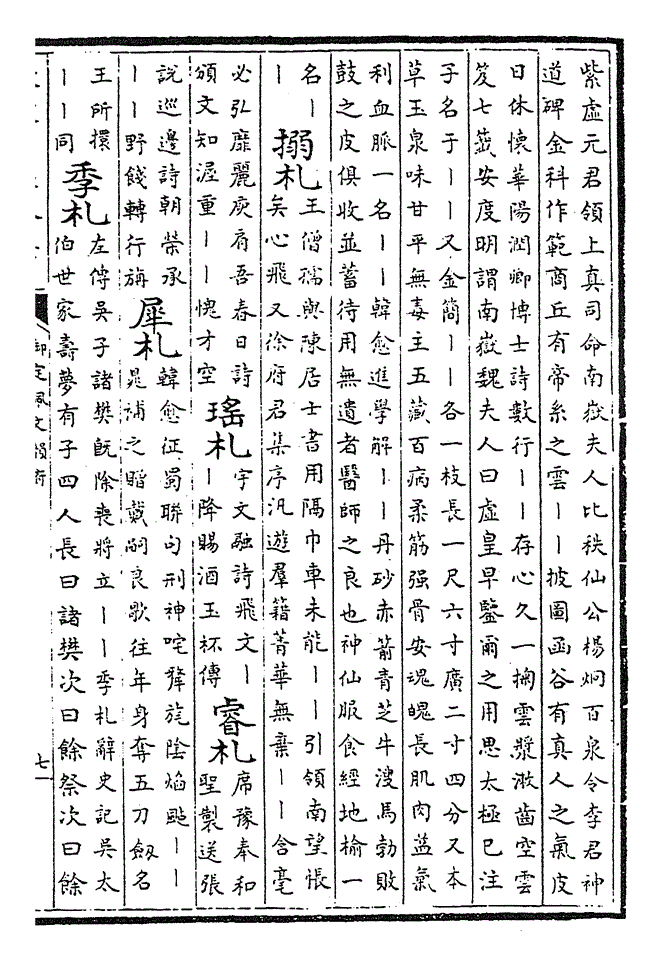 紫虛元君領上真司命南嶽夫人比秩仙公楊炯百泉令李君神
道碑金科作範商丘有帝系之雲丨丨披圖函谷有真人之氣皮
日休懷華陽潤卿博士詩數行丨丨存心久一掬雲漿漱齒空雲
笈七籤安度明謂南嶽魏夫人曰虛皇早鑒爾之用思太極已注
子名于丨丨又金簡丨丨各一枝長一尺六寸廣二寸四分又本
草玉泉味甘平無毒主五藏百病柔筋强骨安魂魄長肌肉益氣
利血脈一名丨丨韓愈進學解丨丨丹砂赤箭青芝牛溲馬勃敗
鼓之皮俱收並蓄待用無遺者醫師之良也神仙服食經地榆一
名丨搦札王僧孺與陳居士書用隔巾車未能丨丨引領南望悵
丨矣心飛又徐府君集序汎遊羣籍菁華無棄丨丨含毫
必弘靡麗庾肩吾春日詩
頒文知渥重丨丨愧才空瑤札宇文融詩飛文丨
丨降賜酒玉杯傳睿札席豫奉和
聖製送張
說巡邊詩朝榮承
丨丨野餞轉行旃犀札韓愈征蜀聯句刑神咤犛旄陰焰颭丨丨
晁補之贈戴嗣良歌往年身奪五刀劔名
王所擐
丨丨同季札左傳吳子諸樊旣除喪將立丨丨季札辭史記吳太
伯世家壽夢有子四人長曰諸樊次曰餘祭次曰餘
御定佩文韻府
七一